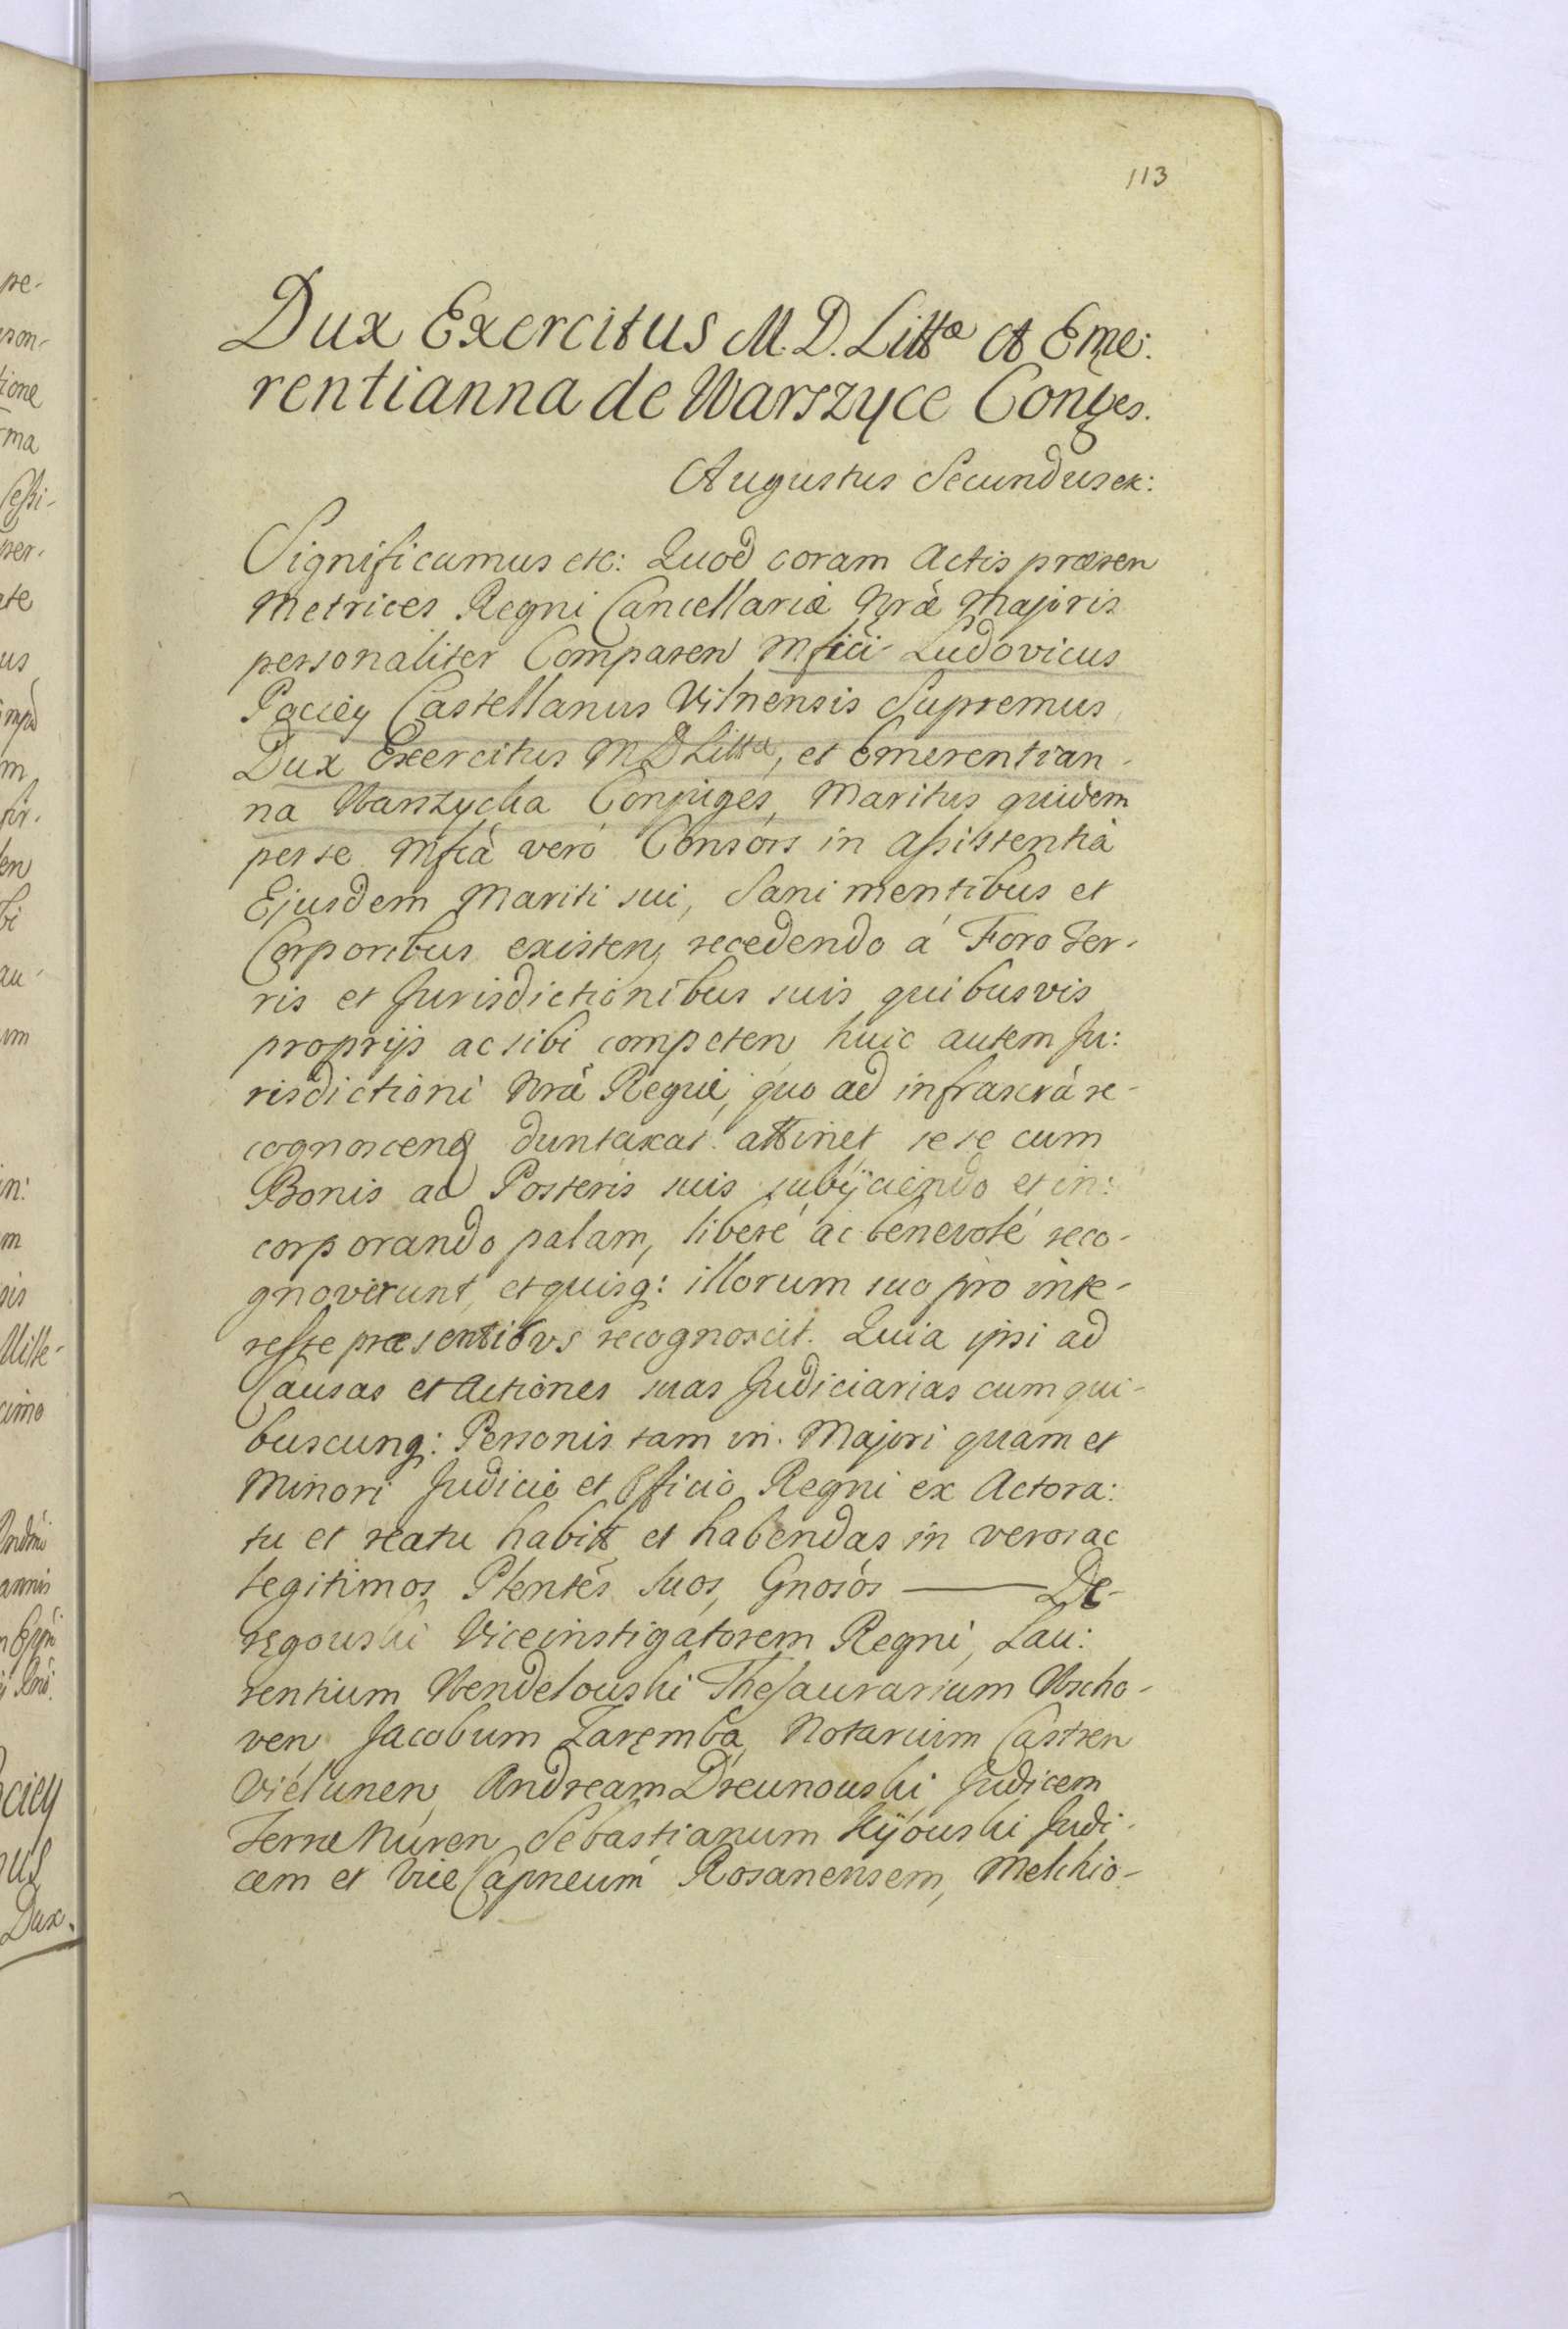 113
Dux Exercitus M. D. Littæ et Eme:
rentianna de Warszyce Conges.
Augustus Secundus etc:
Significamus etc: Quod coram Actis præsen
Metrices Regni Cancellariæ Nræ Majoris
personaliter Comparen Mfici Ludovicus
Pociey Castellanus Vilnensis Supremus
Dux Exercitus M D Littæ, et Emerentian-
na Warszycka Conjuges, Maritus quidem
per se Mfca vero Consors in assistentia
Ejusdem Mariti sui, Sani mentibus et
Corporibus existen, recedendo á Foro Ter-
ris et Jurisdictionibus suis quibusvis
proprijs ac sibi competen, huic autem Ju:
risdictioni Nræ Regiæ, quo ad infrascra re-
cognoscend duntaxat attinet se se cum
Bonis ac Posteris suis subijciendo et in:
corporando palam, liberé ac benevolé reco-
gnoverunt, et quisq: illorum suo pro inte-
resse præsentibus recognoscit. Quia ipsi ad
Causas et Actiones suas Judiciarias cum qui-
buscunq: Personis tam in Majori quam et
Minori Judicio et Officio Regni ex Actora:
tu et reatu habitt et habendas in veros ac
legitimos Plentes suos, Gnosos ——— De-
regouski Viceinstigatorem Regni, Lau:
rentium Wendelouski Thesaurarium Wscho-
ven, Jacobum Zaręmba, Notarium Castren
Vielunen, Andream Dreunouski Judicem
Terræ Nuren, Sebastianum Kijouski Judi-
cem et Vice Capneum Rosanensem, Melchio-